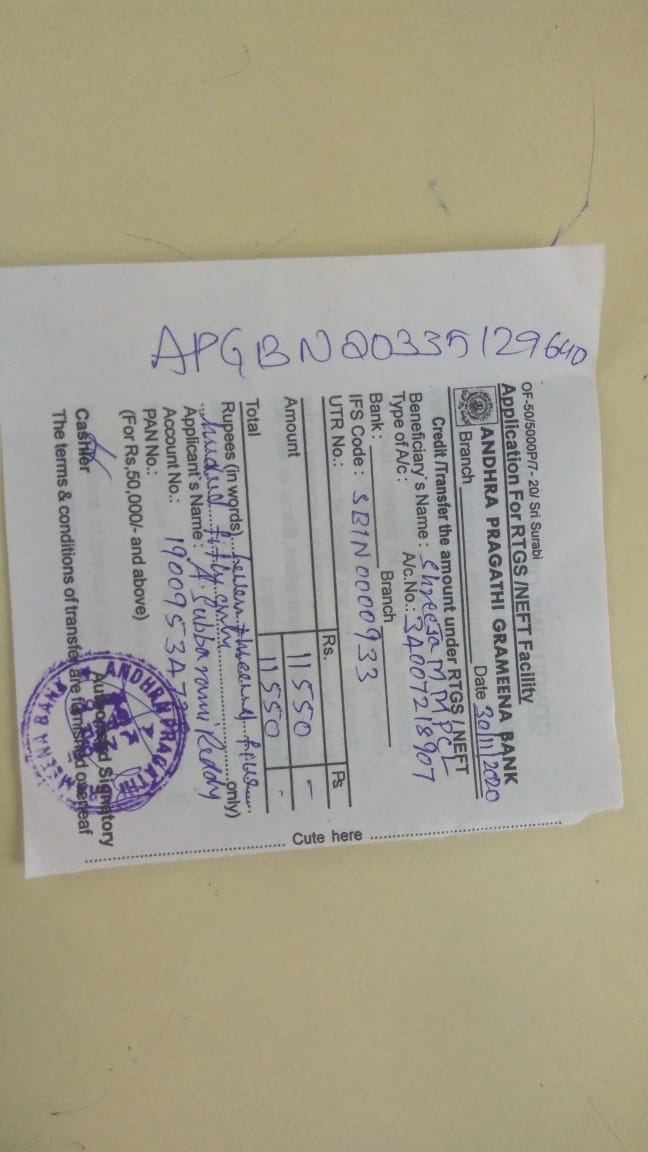 APGBN20335129640
OF-50/5000P/7- 20/ Sri Surabi
Application For RTGS /NEFT Facility
ANDHRA PRAGATHI GRAMEENA BANK
Branch Date 30/11/2020
Credit /Transfer the amount under RTGS / NEFT
Beneficiary's Name : Shreeja MMPCL
Type of A/c : A/c.No.: 34007218907
Bank : Branch
IFS Code : SBIN0000933
UTR No.:
Rs. Ps
Amount 11550 -
Total 11550 -
Rupees (in words) five
fifty only only)
Applicant's Name : A Subbarami Reddy
Account No.: 1900953A7
PAN No.:
(For Rs,50,000/- and above)
Cashier Authorised Signatory
The terms & conditions of transfer are furnished overleaf
ANDHRA PRAGATHI GRAMEENA BANK
Cute here